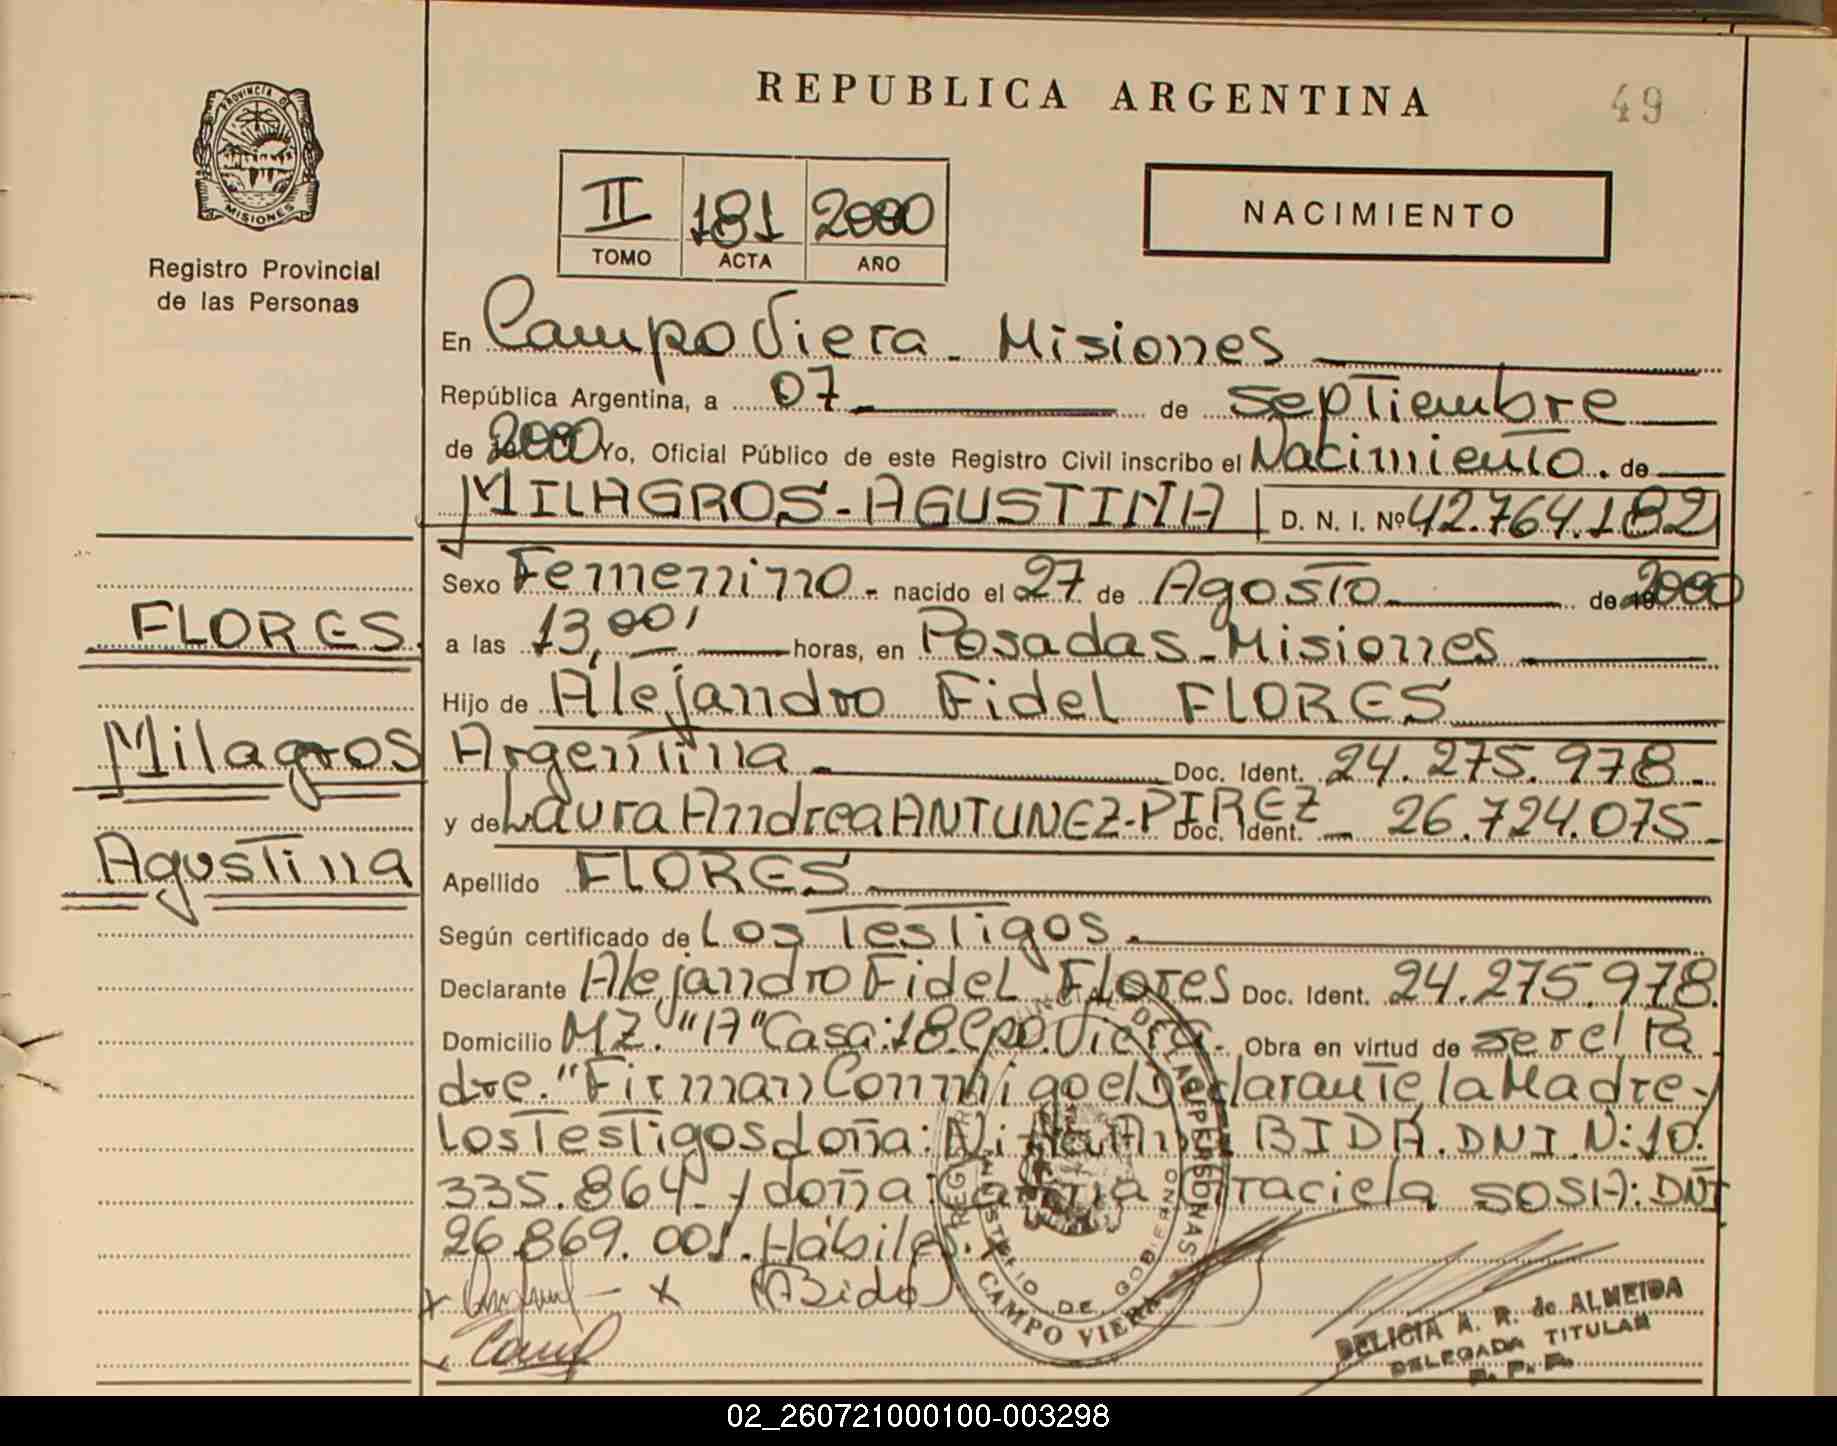 REPUBLICA ARGENTINA
49
PROVINCIA DE
MISIONES
Registro Provincial
de las Personas
II 181 2000
TOMO ACTA AÑO
NACIMIENTO
En Campo Viera - Misiones
República Argentina, a 07 de septiembre
de 2000 Yo, Oficial Público de este Registro Civil inscribo el Nacimiento. de
MILAGROS-AGUSTINA D. N. I. Nº 42.764.182
Sexo Femenino - nacido el 27 de Agosto de 2000
FLORES.
a las 13,00' horas, en Posadas - Misiones
Hijo de Alejandro Fidel FLORES
Milagros
Argentina - Doc. Ident. 24.275.978-
y de Laura Andrea ANTUNEZ-PIREZ Doc. Ident. - 26.724.075-
Agustina
Apellido FLORES
Según certificado de Los Testigos.
Declarante Alejandro Fidel Flores Doc. Ident. 24.275.978.
Domicilio MZ. "17" Casa:18.Cpo.Viera. Obra en virtud de ser el Pa
dre. "Firman Conmigo el Declarante la Madre-y
Los Testigos doña: BIDA. DNI. N:10.
335.864- y doña: Graciela SOSA: DNI
26.869.001. Hábiles. x
x x ABida
REGISTRO PROVINCIAL DE LAS PERSONAS
MINISTERIO DE GOBIERNO
CAMPO VIERA
DELICIA A. R. de ALMEIDA
DELEGADA TITULAR
R. P. P.
02_260721000100-003298